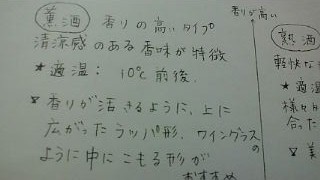 薫酒 香りの高いタイプ
清涼感のある香味が特徴
★適温: 10℃前後。
香りが活きるように、上に
広がったラッパ形、ワイングラスの
ように中にこもる形が
おすすめ
香りが高い
熟酒
軽快な
★適
様々
合った
美